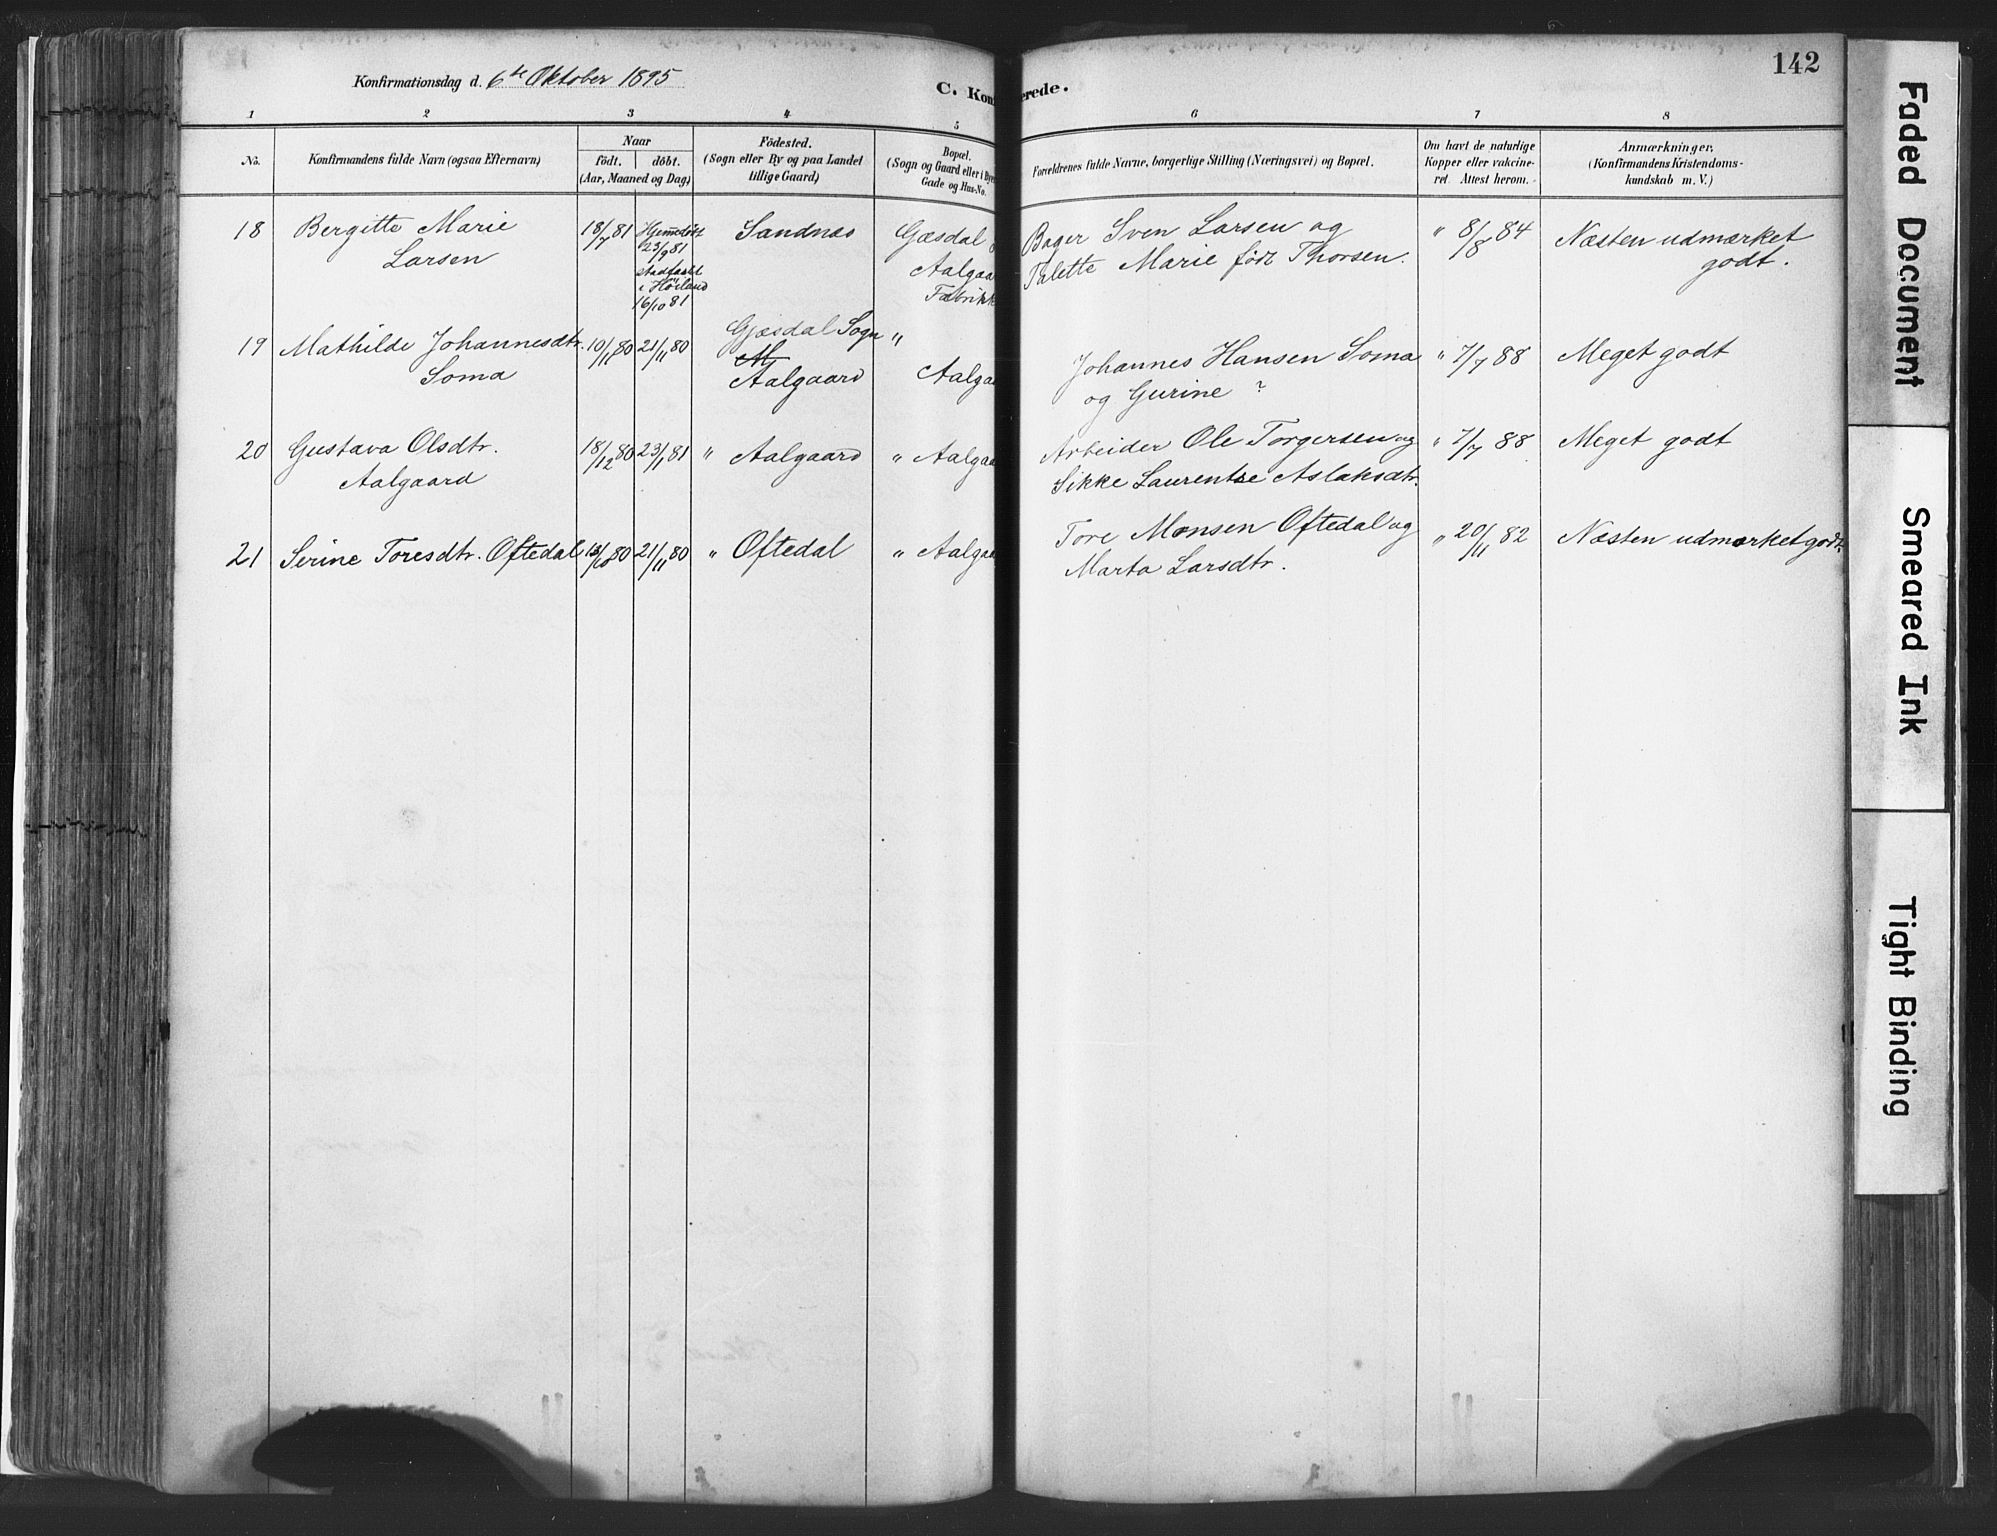 142
Konfirmationsdag d. 6te Oktober 1895
C. Kon erede.
1 2 3 4 5 6 7 8
No.
Konfirmandens fulde Navn (ogsaa Efternavn)
Naar
født. døbt.
(Aar, Maaned og Dag)
Fødested.
(Sogn eller By og paa Landet
tillige Gaard)
Bopæl.
(Sogn og Gaard eller i Byen
Gade og Hus-No.
Forældrenes fulde Navne, borgerlige Stilling (Næringsvei) og Bopæl.
Om havt de naturlige
Kopper eller vakcine-
ret. Attest herom.
Anmærkninger,
(Konfirmandens Kristendoms-
kundskab m. V.)
18 Bergitte Marie
Larsen
18/7 81
Hjemdøbt
23/9 81
stadfæstet
i Høiland
16/10 81
Sandnæs
Gæsdal
Aalgaa
Fabrikk
Bager Sven Larsen og
Talette Marie født Thorsen.
" 8/8 84
Næsten udmærket
godt.
19 Mathilde Johannesdtr.
Soma
10/11 80
21/11 80
Gjæsdal Sogn
Aalgaard
"
Aalgaa
Johannes Hansen Soma
og Gurine ?
" 7/7 88
Meget godt
20 Gustava Olsdtr.
Aalgaard
18/12 80
23/1 81
" Aalgaard
" Aalgaa
Arbeider Ole Torgersen og
Sikke Laurentse Aslaksdtr.
" 7/7 88
Meget godt
21 Serine Toresdtr. Oftedal
/10 80
21/11 80
" Oftedal
" Aalgaa
Tore Monsen Oftedal og
Marta Larsdtr.
" 20/11 82
Næsten udmærket godt.
Faded Document
Smeared Ink
Tight Binding